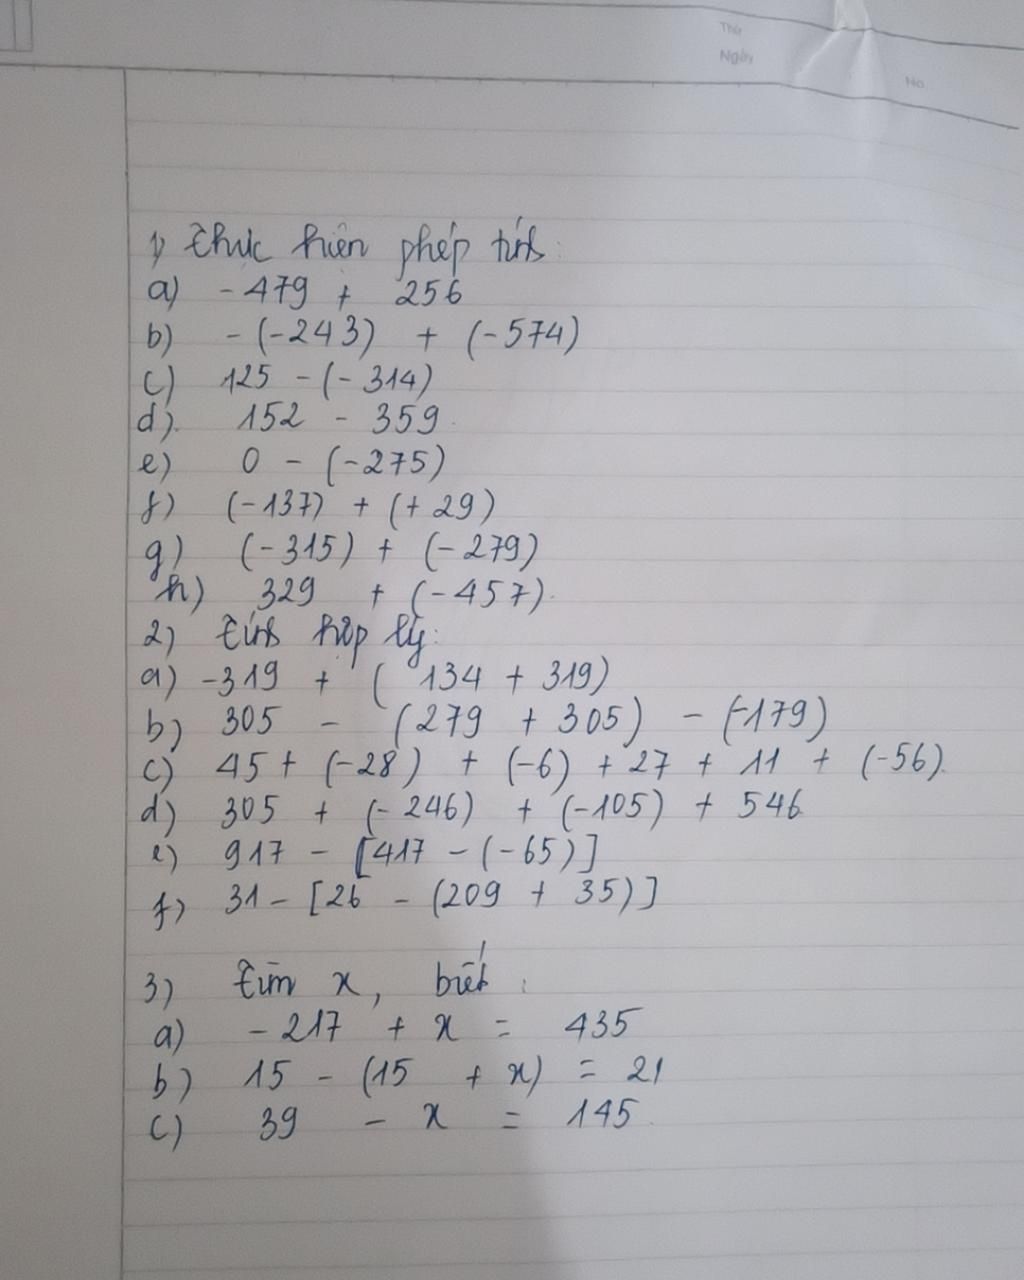 Thứ
Ngày
No.
1) Thực hiện phép tính:
a) -479 + 256
b) -(-243) + (-574)
c) 125 -(-314)
d). 152 - 359.
e) 0 - (-275)
f) (-137) + (+29)
g) (-315) + (-279)
h) 329 + (-457).
2) Tính hợp lý:
a) -319 + ( 134 + 319)
b) 305 - (279 + 305) - (-179)
c) 45 + (-28) + (-6) + 27 + 11 + (-56).
d) 305 + (-246) + (-105) + 546
e) 917 - [417 - (-65)]
f) 31 - [26 - (209 + 35)]
3) Tìm x, biết:
a) -217 + x = 435
b) 15 - (15 + x) = 21
c) 39 - x = 145.